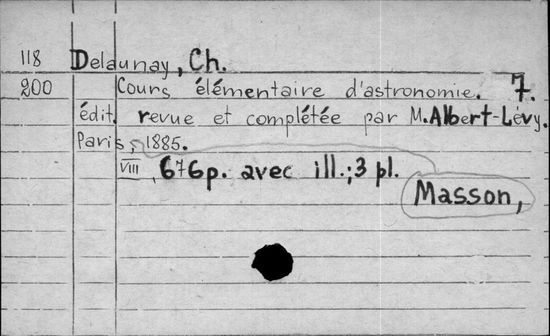 118 Delaunay, Ch.
200 Cours élémentaire d'astronomie. 7.
édit. revue et complétée par M. Albert-Lévy.
Paris, 1885.
VIII, 676p. avec ill.; 3 pl.
Masson,